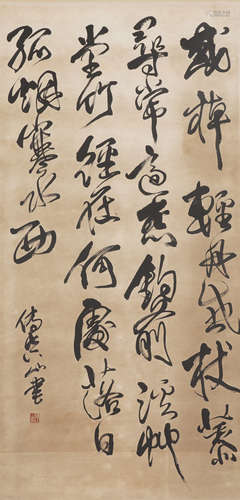 或棹輕舟或杖藜
尋常適意釣前溪草
堂竹徑在何處落日
孤烟寒水西
傅山書